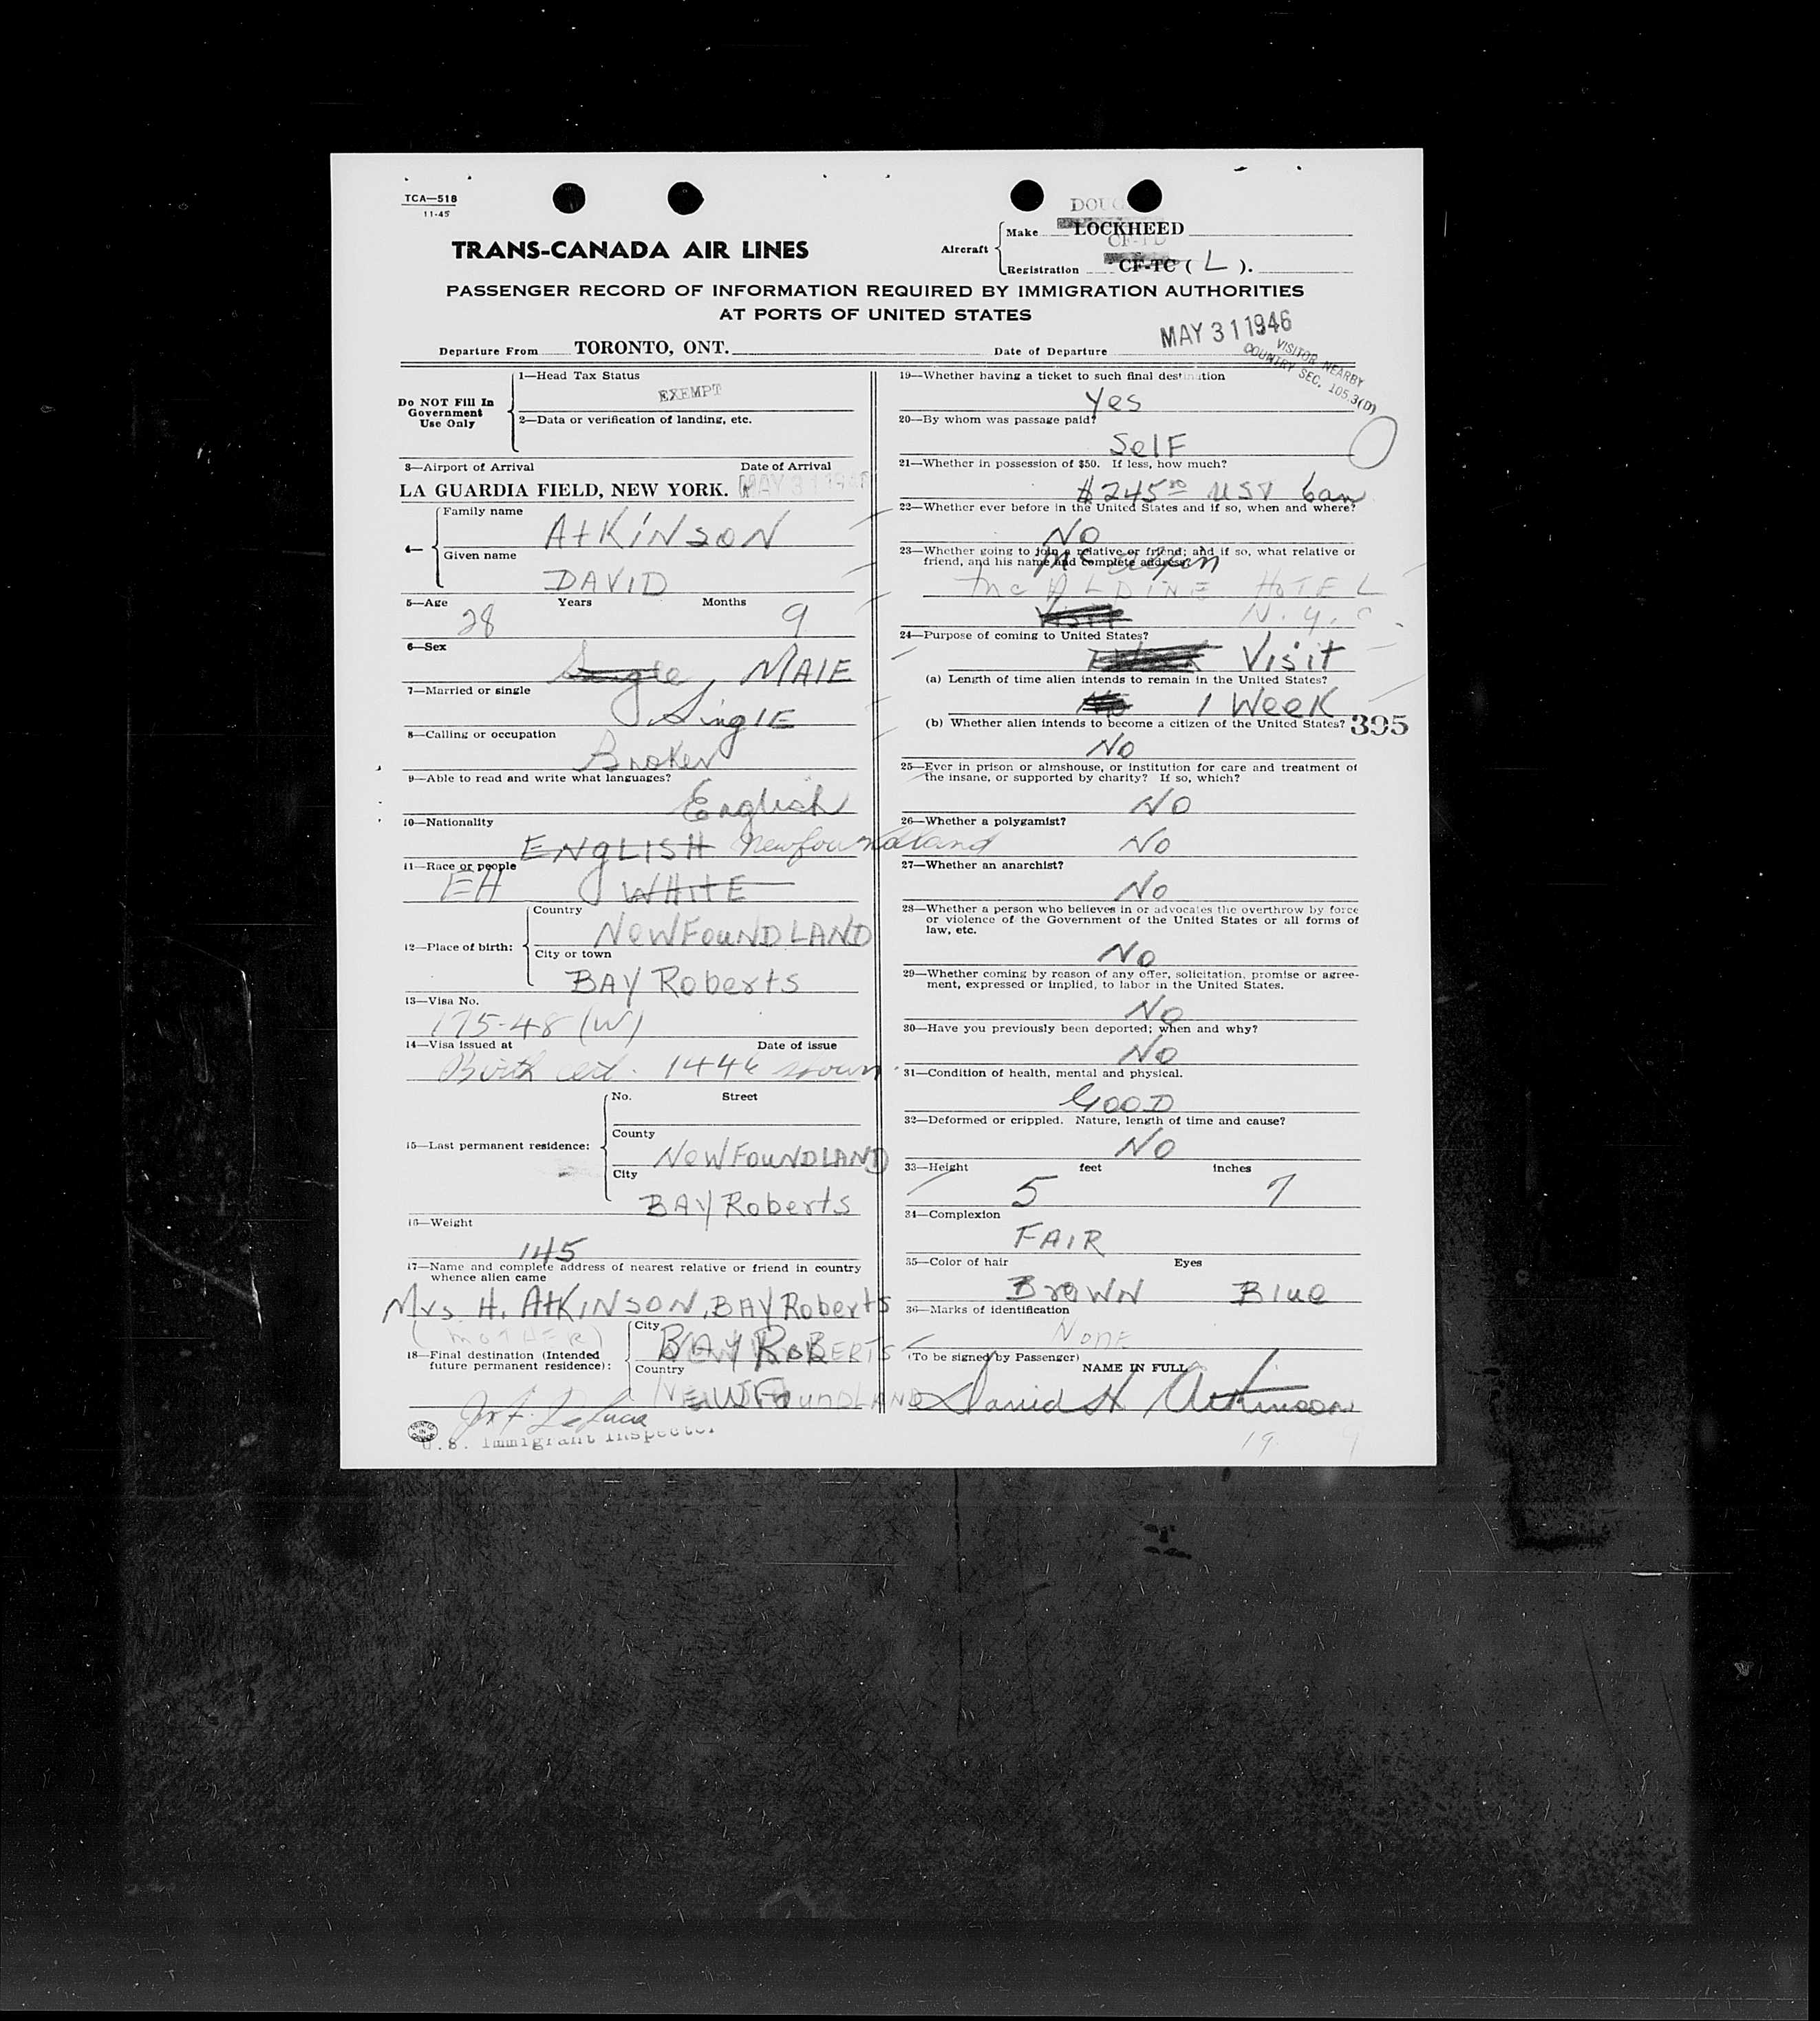 TCA—518
11-45
TRANS-CANADA AIR LINES
Aircraft
Make LOCKHEED
CF-TD
Registration CF-TC ( L ).
PASSENGER RECORD OF INFORMATION REQUIRED BY IMMIGRATION AUTHORITIES
AT PORTS OF UNITED STATES
MAY 31 1946
Departure From TORONTO, ONT. Date of Departure
VISITOR NEARBY
COUNTRY SEC. 105.3(D)
Do NOT Fill In
Government
Use Only
1—Head Tax Status
EXEMPT
2—Data or verification of landing, etc.
3—Airport of Arrival Date of Arrival
LA GUARDIA FIELD, NEW YORK. MAY 31 1946
4—
Family name
AtKiNSON
Given name
DAVID
5—Age Years Months
28 9
6—Sex
Single MAlE
7—Married or single
SinglE
8—Calling or occupation
Broker
9—Able to read and write what languages?
English
10—Nationality
ENgLISH Newfoundland
11—Race or people
EH WHItE
12—Place of birth:
Country
NEWFOUNDLAND
City or town
BAY Roberts
13—Visa No.
175-48 (W)
14—Visa issued at Date of issue
Birth cert. 1446 shown
15—Last permanent residence:
No. Street
County
NEWFOUNDLAND
City
BAY Roberts
16—Weight
145
17—Name and complete address of nearest relative or friend in country
whence alien came
Mrs H. AtKINSON, BAY Roberts
(MOTHER)
18—Final destination (Intended
future permanent residence):
City
BAY ROBERTS
Country
NEWFOUNDLAND
U.S. Immigrant Inspector
19—Whether having a ticket to such final destination
Yes
20—By whom was passage paid?
SelF
21—Whether in possession of $50. If less, how much?
$245.00 UST can
22—Whether ever before in the United States and if so, when and where?
NO
23—Whether going to join a relative or friend; and if so, what relative or
friend, and his name and complete address?
McAlpin
McALPINE HOTEL
Visit N.Y.C.
24—Purpose of coming to United States?
Visit
(a) Length of time alien intends to remain in the United States?
No 1 Week
(b) Whether alien intends to become a citizen of the United States? 395
NO
25—Ever in prison or almshouse, or institution for care and treatment of
the insane, or supported by charity? If so, which?
NO
26—Whether a polygamist?
NO
27—Whether an anarchist?
NO
28—Whether a person who believes in or advocates the overthrow by force
or violence of the Government of the United States or all forms of
law, etc.
NO
29—Whether coming by reason of any offer, solicitation, promise or agree-
ment, expressed or implied, to labor in the United States.
NO
30—Have you previously been deported; when and why?
NO
31—Condition of health, mental and physical.
GOOD
32—Deformed or crippled. Nature, length of time and cause?
NO
33—Height feet inches
5 7
34—Complexion
FAIR
35—Color of hair Eyes
BrOWN Blue
36—Marks of identification
NONE
(To be signed by Passenger)
NAME IN FULL
David H Atkinson
19.